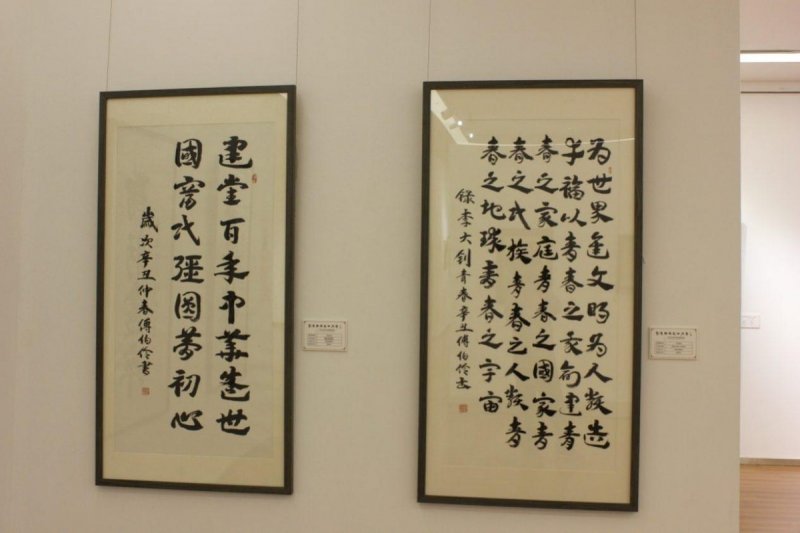 建党百年中華盛世
國富民彊圓夢初心
歲次辛丑仲春傅伯伶書
为世界進文明为人類造
幸福以青春之我創建青
春之家庭青春之國家青
春之民族青春之人類青
春之地球青春之宇宙
録李大釗青春辛丑傅伯伶书